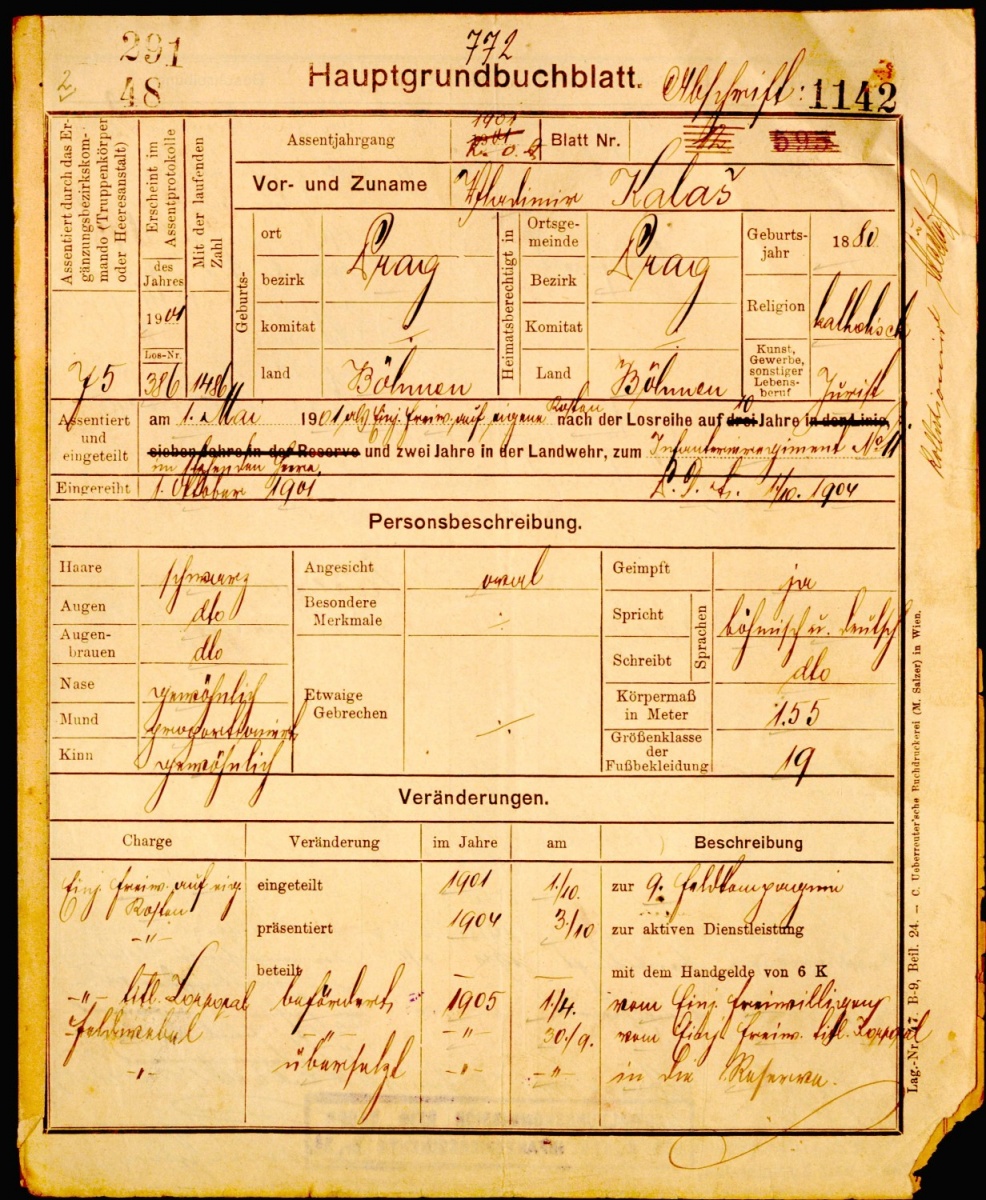 291
772
48
Hauptgrundbuchblatt. Abschrift: 1142
Assentiert durch das Ergänzungsbezirkskommando (Truppenkörper oder Heeresanstalt)
75
Erscheint im Assentprotokolle
des Jahres
1901
Los-Nr.
386
Mit der laufenden Zahl
1486
Assentjahrgang 1901
Blatt Nr. 12 593
Vor- und Zuname Vladimir Kalaš
Geburts-
ort Prag
bezirk
komitat ÷
land Böhmen
Heimatsberechtigt in
Ortsgemeinde Prag
Bezirk
Komitat ÷
Land Böhmen
Geburtsjahr 1880
Religion katholisch
Kunst, Gewerbe, sonstiger Lebensberuf Jurist
Assentiert und eingeteilt
am 1. Mai 1901 als Einj. Freiw. auf eigene Kosten nach der Losreihe auf drei 10 Jahre in der Linie,
sieben Jahre in der Reserve und zwei Jahre in der Landwehr, zum Infanterieregiment No 11
im stehenden Heere.
Eingereiht 1. Oktober 1901 1/10. 1904
Personsbeschreibung.
Haare schwarz
Augen dto
Augenbrauen dto
Nase gewöhnlich
Mund proportioniert
Kinn gewöhnlich
Angesicht oval
Besondere Merkmale ÷
Etwaige Gebrechen ÷
Geimpft ja
Spricht Sprachen böhmisch u. deutsch
Schreibt dto
Körpermaß in Meter 1.55
Größenklasse der Fußbekleidung 19
Veränderungen.
Charge Veränderung im Jahre am Beschreibung
Einj. Freiw. auf eig. eingeteilt 1901 1./10. zur 9. Feldkompagnie
Kosten
-"- präsentiert 1904 3./10 zur aktiven Dienstleistung
beteilt — — mit dem Handgelde von 6 K
-"- titl. Korporal befördert 1905 1./4. vom Einj. Freiwilligen
Feldwebel -"- -"- 30./9. vom Einj. Freiw. titl. Korporal
-"- übersetzt -"- -"- in die Reserve.
Lag.-Nr. 7 B-9, Beil. 24. — C. Ueberreuter'sche Buchdruckerei (M. Salzer) in Wien.